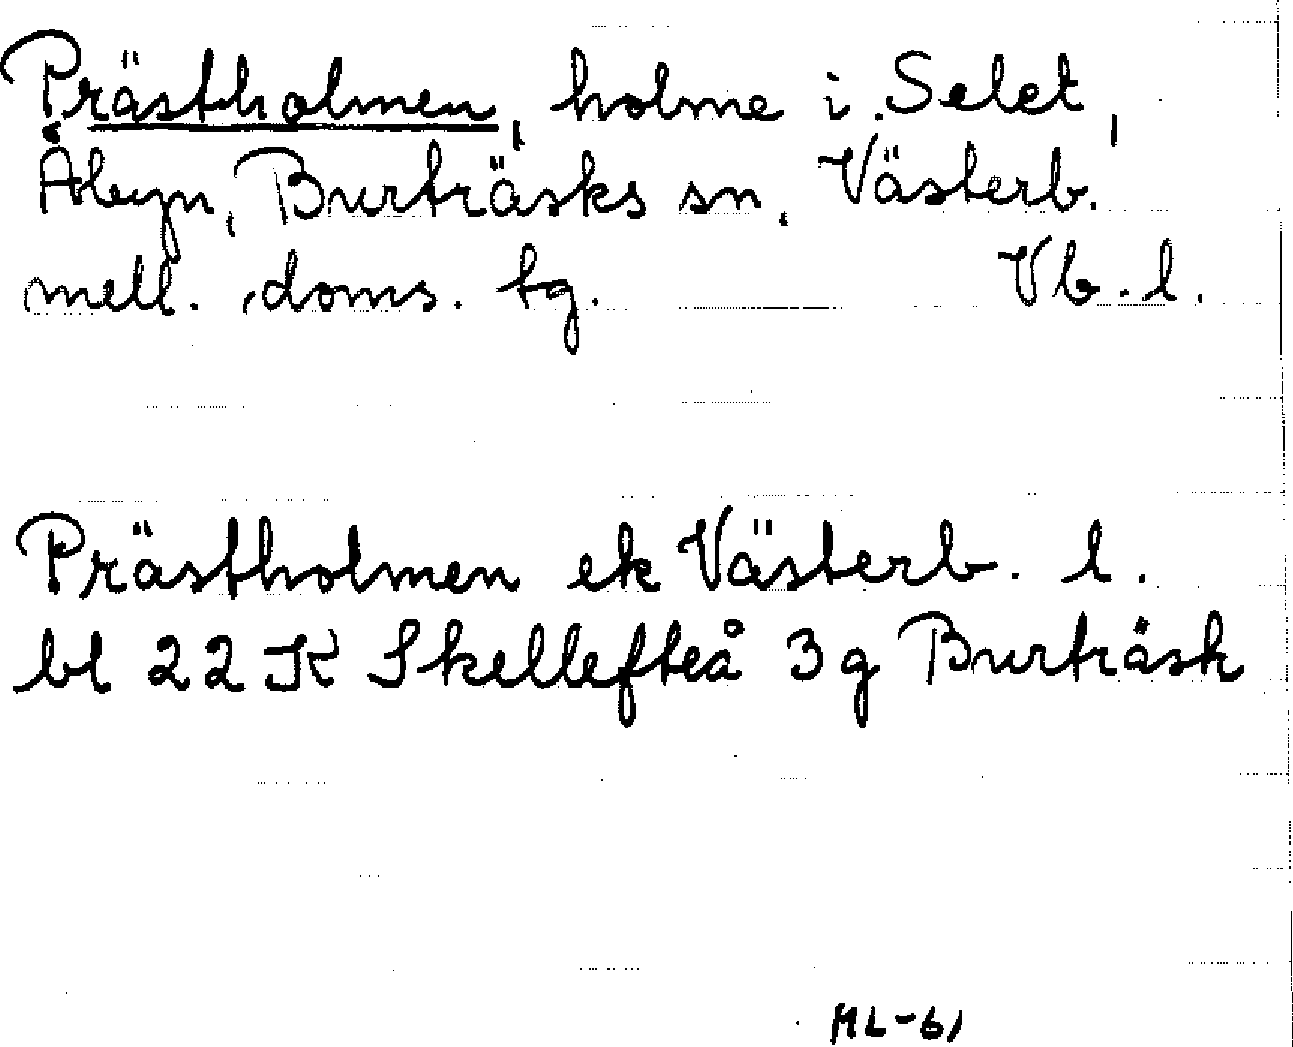 Prästholmen, holme i Selet,
Åbyn, Burträsks sn, Västerb.
mell. doms. tg. Vb. l.
Prästholmen ek Västerb. l.
bl 22 K Skellefteå 3g Burträsk
HL-61